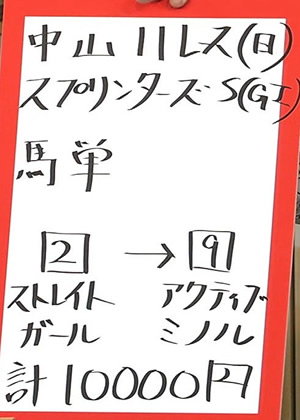 中山11レース(日)
スプリンターズS(GI)
馬単
2 → 9
ストレイト アクティブ
ガール ミノル
計10000円